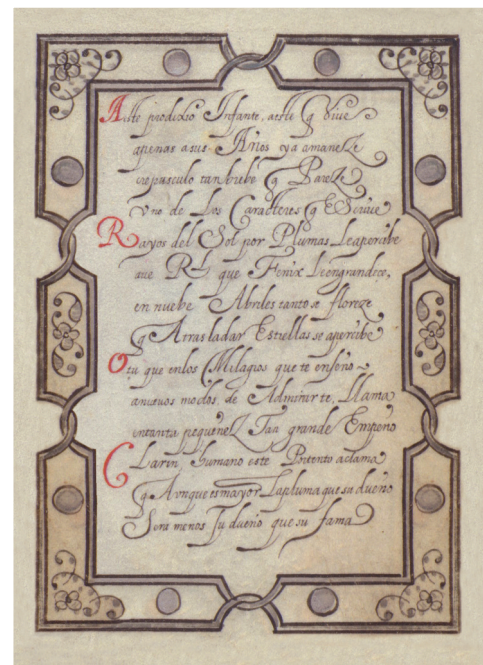 Aeste prodixio Infante, aeste q Viue
apenas asus Años ya amaneze
crepusculo tan brebe q Pareze
Vno de Los Caracteres q EScriue
Rayos del Sol por Plumas Leapercibe
aue Rl que Fenix Leengrandece,
en nuebe Abriles tanto se floreze
q Atrasladar Estrellas se apercibe
O tu que enlos Milagros que te enseño
anueuos modos, de Admirarte, Llama
entanta pequeñez Taa grande Empeño
Clarin, humano este Portento aclama
q Avnque esmayor Lapluma que su dueño
Sera menos Tu dueño que su fama